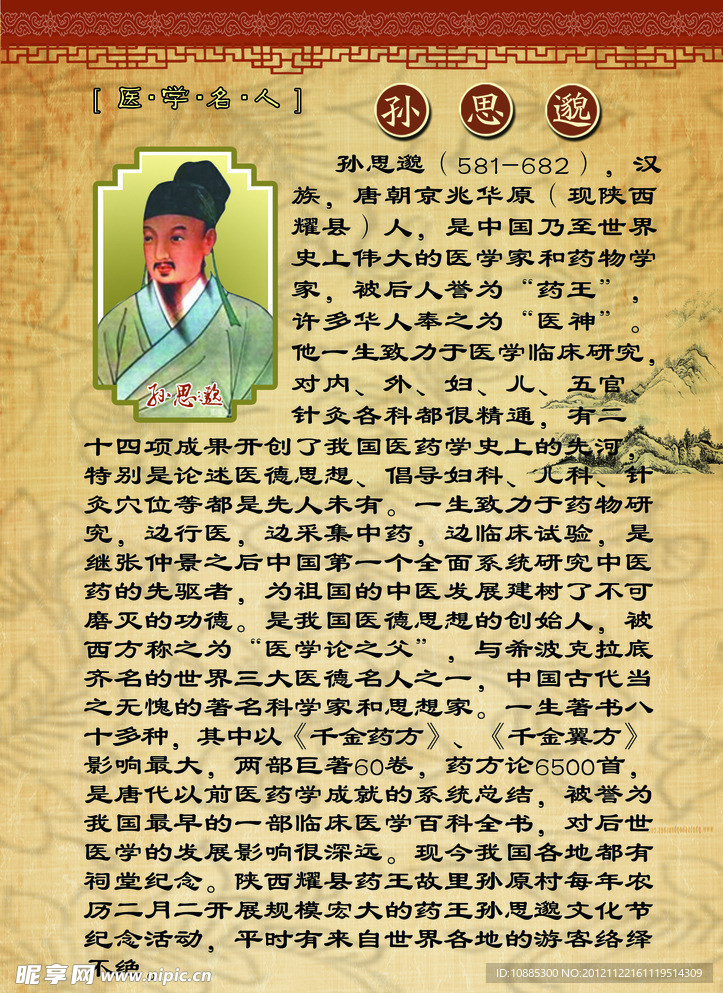 [ 医·学·名·人 ]
孙 思 邈
孙思邈（581-682），汉
族，唐朝京兆华原（现陕西
耀县）人，是中国乃至世界
史上伟大的医学家和药物学
家，被后人誉为“药王”，
许多华人奉之为“医神”。
他一生致力于医学临床研究，
对内、外、妇、儿、五官
针灸各科都很精通，有二
十四项成果开创了我国医药学史上的先河，
特别是论述医德思想、倡导妇科、儿科、针
灸穴位等都是先人未有。一生致力于药物研
究，边行医，边采集中药，边临床试验，是
继张仲景之后中国第一个全面系统研究中医
药的先驱者，为祖国的中医发展建树了不可
磨灭的功德。是我国医德思想的创始人，被
西方称之为“医学论之父”，与希波克拉底
齐名的世界三大医德名人之一，中国古代当
之无愧的著名科学家和思想家。一生著书八
十多种，其中以《千金药方》、《千金翼方》
影响最大，两部巨著60卷，药方论6500首，
是唐代以前医药学成就的系统总结，被誉为
我国最早的一部临床医学百科全书，对后世
医学的发展影响很深远。现今我国各地都有
祠堂纪念。陕西耀县药王故里孙原村每年农
历二月二开展规模宏大的药王孙思邈文化节
纪念活动，平时有来自世界各地的游客络绎
不绝
孙思邈
昵享网 www.nipic.cn
ID:10885300 NO:20121122161119514309